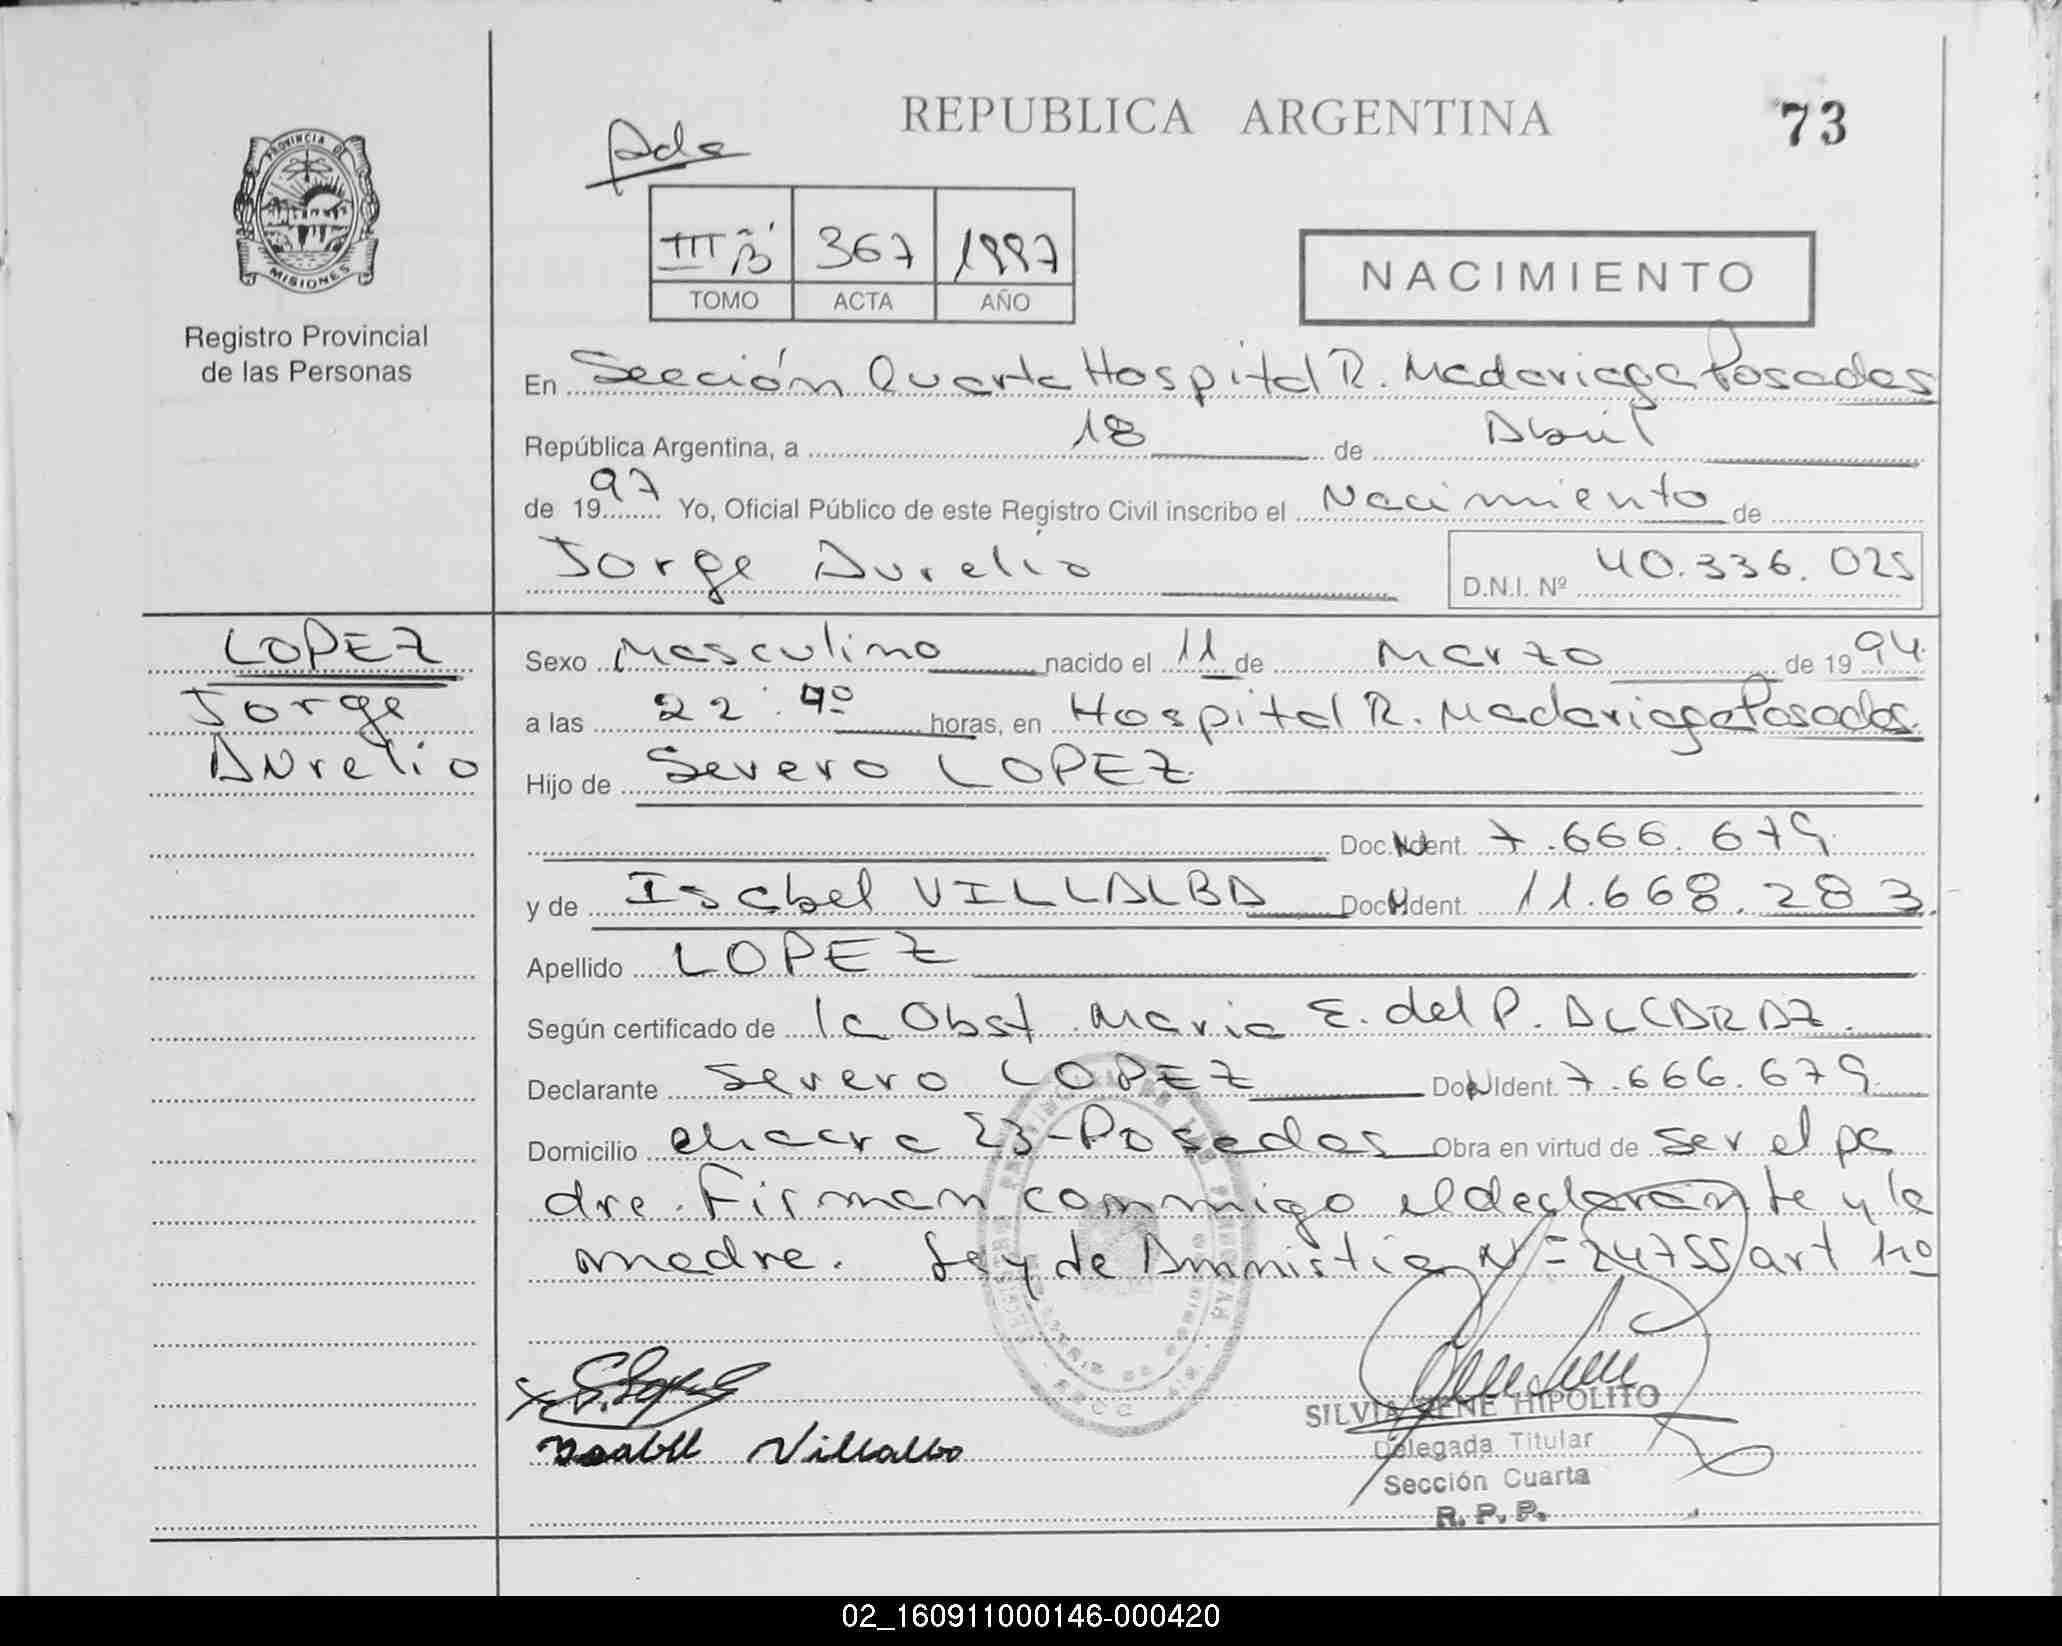 REPUBLICA ARGENTINA
73
PROVINCIA DE
MISIONES
Registro Provincial
de las Personas
III B 367 1997
TOMO ACTA AÑO
NACIMIENTO
En Sección Quarta Hospital R. Madariaga Posadas
República Argentina, a 18 de Abril
de 1997 Yo, Oficial Público de este Registro Civil inscribo el Nacimiento de
Jorge Aurelio D.N.I. Nº 40.336.025
LOPEZ
Jorge
Aurelio
Sexo Masculino nacido el 11 de Marzo de 1994
a las 22:40 horas, en Hospital R. Madariaga Posadas
Hijo de Severo LOPEZ
Doc. Ident. 7.666.679
y de Isabel VILLALBA Doc. Ident. 11.668.283
Apellido LOPEZ
Según certificado de la Obst. Maria E. del P. ALCARAZ
Declarante Severo LOPEZ Doc. Ident. 7.666.679
Domicilio chacra 23-Posadas Obra en virtud de ser el pa
dre. Firman conmigo el declarante y la
madre. Ley de Amnistia Nº 24755 art 1º
Isabel Villalba
SILVIA IRENE HIPOLITO
Delegada Titular
Sección Cuarta
R. P. P.
02_160911000146-000420